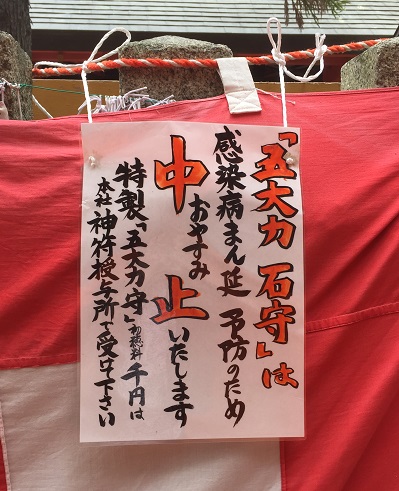 「五大力 石守」は
感染病まん延 予防のため
中止いたします
おやすみ
特製「五大力守」初穂料 千円は
本社 神符授与所で受け下さい